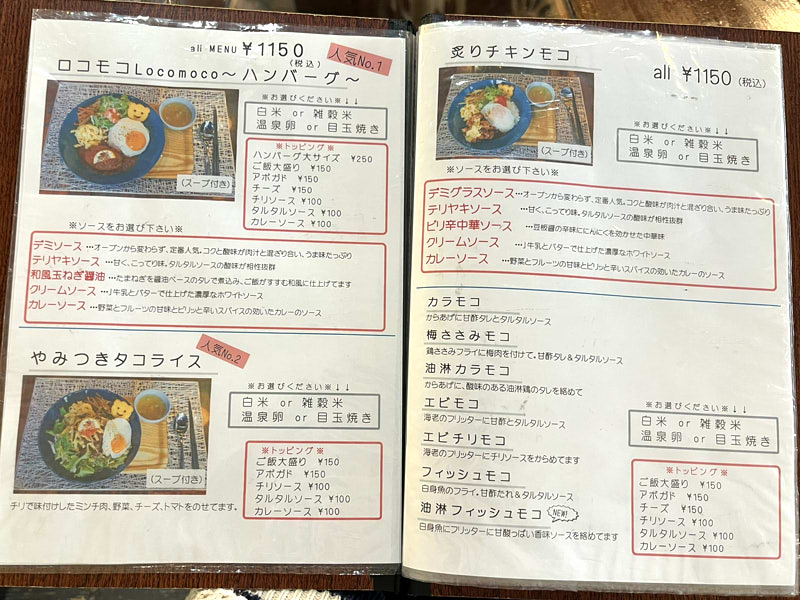 all MENU ¥1150
(税込)
人気No.1
ロコモコLocomoco～ハンバーグ～
※お選びください※↓↓
白米 or 雑穀米
温泉卵 or 目玉焼き
(スープ付き)
※トッピング※
ハンバーグ大サイズ ¥250
ご飯大盛り ¥150
アボガド ¥150
チーズ ¥150
チリソース ¥100
タルタルソース ¥100
カレーソース ¥100
※ソースをお選び下さい※
デミソース…オープンから変わらず、定番人気。コクと酸味が肉汁と混ざり合い、うま味たっぷり
テリヤキソース…甘く、こってり味。タルタルソースの酸味が相性抜群
和風玉ねぎ醤油…たまねぎを醤油ベースのタレで煮込み、ご飯がすすむ和風に仕上げてます
クリームソース…J牛乳とバターで仕上げた濃厚なホワイトソース
カレーソース…野菜とフルーツの甘味とピリッと辛いスパイスの効いたカレーのソース
人気No.2
やみつきタコライス
※お選びください※↓↓
白米 or 雑穀米
温泉卵 or 目玉焼き
(スープ付き)
※トッピング※
ご飯大盛り ¥150
アボガド ¥150
チリソース ¥100
タルタルソース ¥100
カレーソース ¥100
チリで味付けしたミンチ肉、野菜、チーズ、トマトをのせてます。
炙りチキンモコ
all ¥1150(税込)
※お選びください※↓↓
白米 or 雑穀米
温泉卵 or 目玉焼き
(スープ付き)
※ソースをお選び下さい※
デミグラスソース…オープンから変わらず、定番人気。コクと酸味が肉汁と混ざり合い、うま味たっぷり
テリヤキソース…甘く、こってり味。タルタルソースの酸味が相性抜群
ピリ辛中華ソース…豆板醤の辛味ににんにくを効かせた中華味
クリームソース…J牛乳とバターで仕上げた濃厚なホワイトソース
カレーソース…野菜とフルーツの甘味とピリッと辛いスパイスの効いたカレーのソース
カラモコ
からあげに甘酢タレとタルタルソース
梅ささみモコ
鶏ささみフライに梅肉を付けて。甘酢タレ＆タルタルソース
油淋カラモコ
からあげに、酸味のある油淋鶏のタレを絡めて
エビモコ
海老のフリッターに甘酢とタルタルソース
エビチリモコ
海老のフリッターにチリソースをからめてます
フィッシュモコ
白身魚のフライ。甘酢たれ＆タルタルソース
油淋フィッシュモコ NEW!
白身魚にフリッターに甘酸っぱい香味ソースを絡めてます
※お選びください※↓↓
白米 or 雑穀米
温泉卵 or 目玉焼き
※トッピング※
ご飯大盛り ¥150
アボガド ¥150
チーズ ¥150
チリソース ¥100
タルタルソース ¥100
カレーソース ¥100